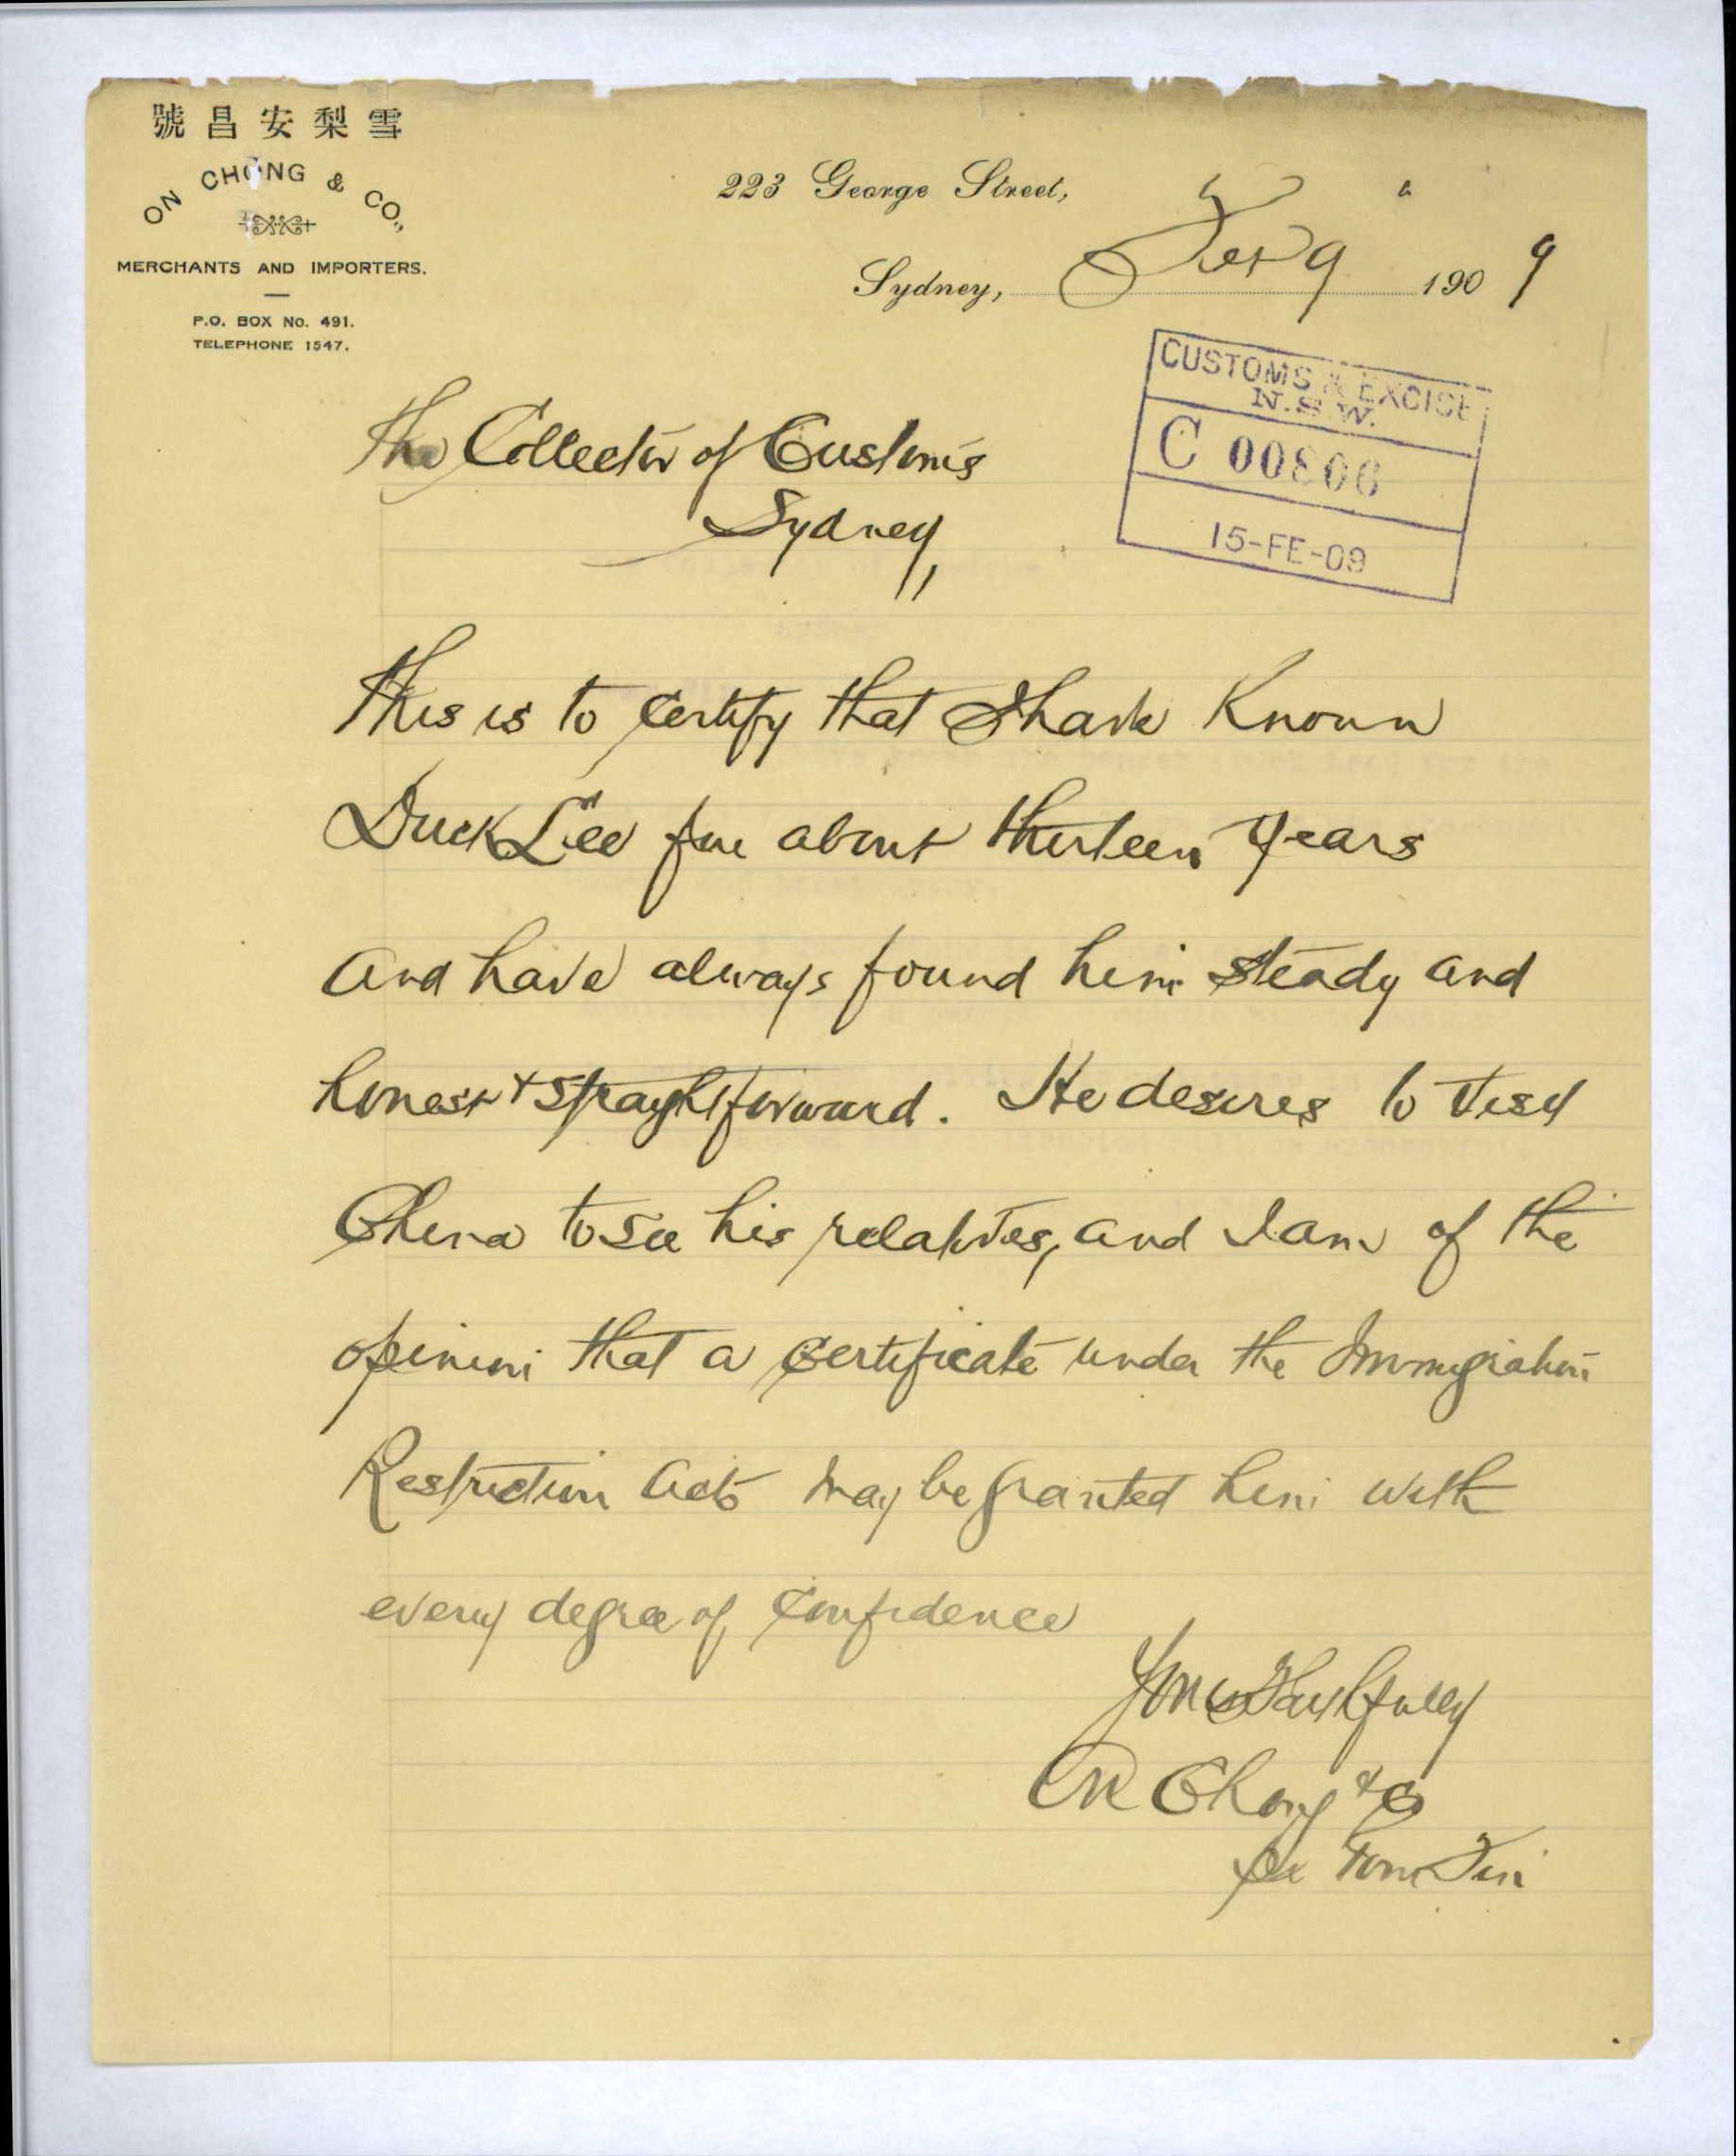 號昌安梨雪
ON CHONG & CO.,
MERCHANTS AND IMPORTERS.
P.O. BOX No. 491.
TELEPHONE 1547.
223 George Street,
Sydney, Feb 9 1909
CUSTOMS & EXCISE
N.S.W.
C 00806
15-FE-09
The Collector of Customs
Sydney
This is to certify that I have Known
Duck Lee for about thirteen years
and have always found him steady and
honest & straightforward. He desires to visit
China to see his relatives, and I am of the
opinion that a certificate under the Immigration
Restriction Acts may be granted him with
every degree of confidence
Yours faithfully
On Chong & Co
per